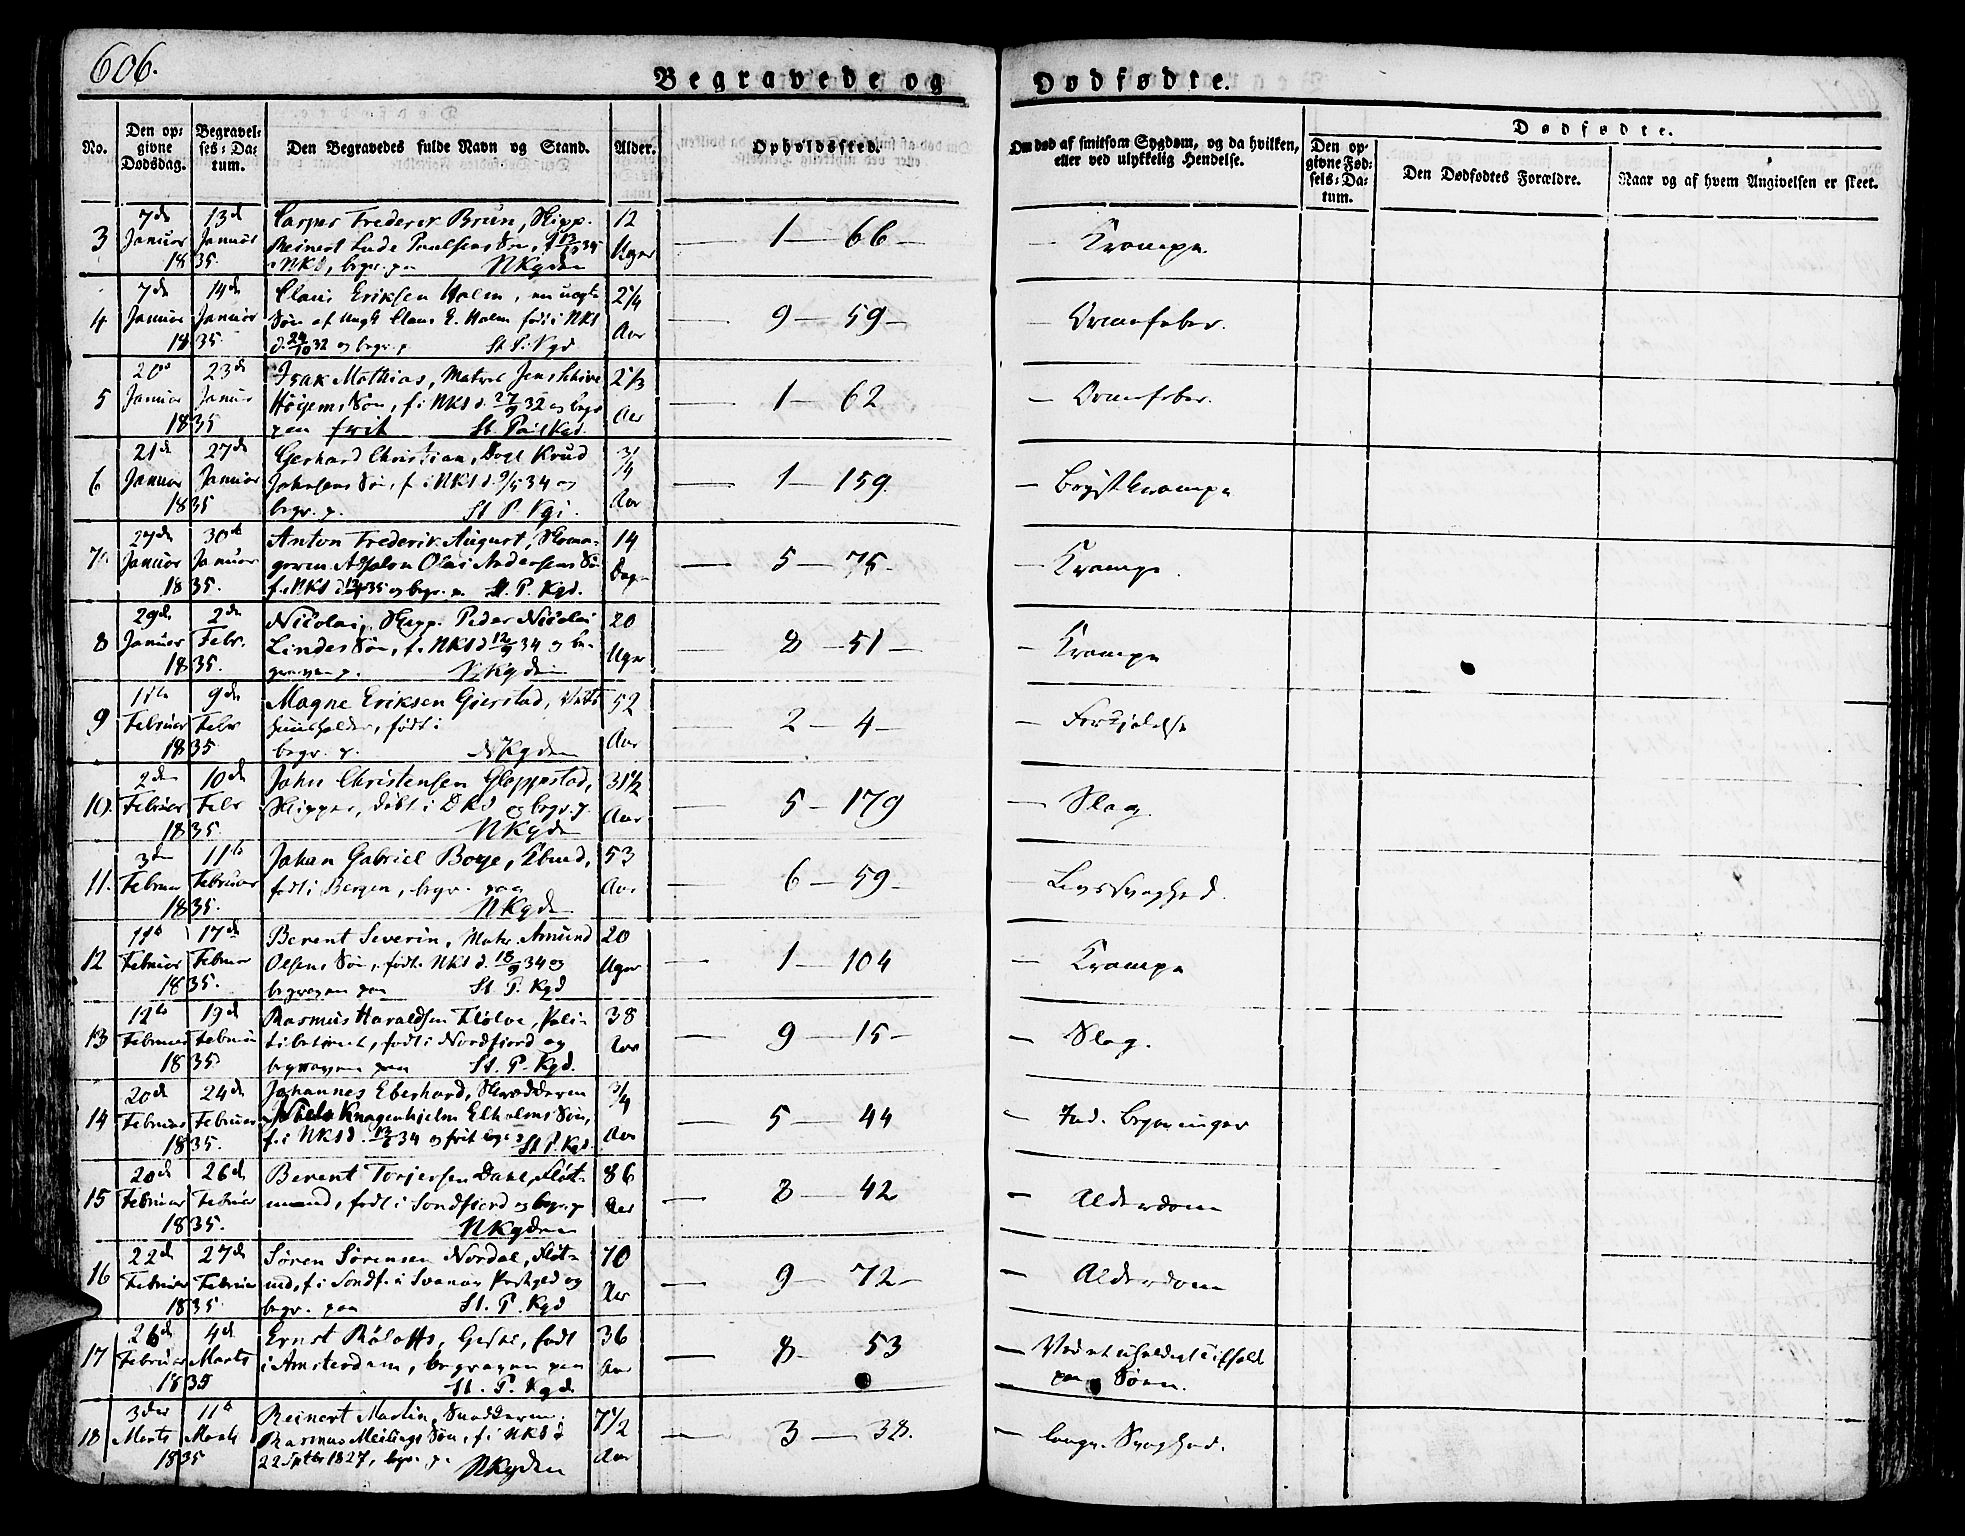 606.
Begravede og Dødfødte.
No. Den opgivne Dødsdag. Begravelses-Datum. Den Begravedes fulde Navn og Stand. Alder. Opholdssted. Om død af smitsom Sygdom, og da hvilken, eller ved ulykkelig Hendelse. Dødfødte. Den opgivne Fødsels-Datum. Den Dødfødtes Forældre. Naar og af hvem Angivelsen er skeet.
3 7de Januar 1835 13de Januar Casper Frederik Brun, Skipp. 12 Uger — 1 — 66 — — Krampe
Reinert Lude Paulsens Søn,
NKS, begr. paa NKgden
4 7de Januar 1835 14de Januar Claus Eriksen Holm, en uægte 2 1/4 Aar — 9 — 59 — — Ormefeber.
Søn af Ungk Claus E. Holm født i NKS
d. 24/10 32 og begr. p. St. P. Kgd
5 20de Januar 1835 23de Januar Isak Mathias, Matros Jens Schive 2 1/3 Aar — 1 — 62 — Ormefeber.
Høyems Søn, f. i NKS d. 27/9 32 og begr
paa frit St. Pauls Kgd.
6 21de Januar 1835 27de Januar Gerhard Christian, Knud 3/4 Aar — 1 — 159. — Brystkrampe
Johnsens Søn, f. i NKS d. 9/5 34 og
begr. p. St. P. Kg.
7. 27de Januar 1835. 30te Januar Anton Frederik August, Skoma- 14 Dage — 5 — 75 — — Krampe.
geren Absalon Olai Andersens Søn
f. i NKS d 35 og begr. p. St. P. Kgd.
8 29de Januar 1835. 2de Febr. Nicolai, Skipp. Peder Nicolai 20 Uger — 8 — 51 — — Krampe
Lindes Søn, f. NKS d 12/9 34 og be-
graven p. NKgden
9 Februar 1835 9de Febr Magne Eriksen Gierstad, 52 Aar — 2 — 4 — — Forkjølelse
huusholder, født i
begr. p. NKgden
10. 2den Februar 1835. 10de Febr John Christensen Gloppestad, 31 1/2 Aar — 5 — 179 — Slag
Skipper, døbt i DKS og begr. p.
NKgden
11. 3die Februar 1835. 11te Februar Johan Gabriel Boye, 53 Aar — 6 — 59 — — Livssvaghed.
født i Bergen, begr. paa
NKgden
12 11te Februar 1835. 17de Februar Berent Severin, Matr. Amund 20 Uger — 1 — 104 — Krampe
Olsens Søn, født NKS d. 18/9 34 og
begraven paa St. P. Kgd
13 12te Februar 1835 19de Februar Rasmus Haraldsen Flølve, Poli- 38 Aar — 9 — 15 — — Slag.
tibetient, født i Nordfiord og
begraven paa St. P. Kgd.
14 20de Februar 1835. 24de Februar Johannes Eberhard, Skrædderen 3/4 Aar — 5 — 44 — Ind. Bryninger
Niels Knagenhjelm Elholms Søn,
f. i NKS d. 34 og frit begr. p St. P. Kgd.
15 20de Februar 1835. 26de Februar Berent Torjersen Dahl, Fløt- 86 Aar — 8 — 42 — Alderdom
mand, født i Søndfiord og begr. p
NKgden
16 22de Februar 1835 27de Februar Søren Sørensen Nordal, Fløt- 70 Aar — 9 — 72 — — Alderdom
md, f. i Sondf. i Svanøe Prstgjld og
begr. paa St. P. Kgd
17 26de Februar 1835 4de Marts Ernst Røloffs, født 36 Aar — 8 — 53 — Ved et uheldigt Tilfælde
i Amsterdam, begraven paa paa Søen.
St. P. Kgd.
18 3die Marts 1835 11te Marts Reinert Martin, Snedkeren 7 1/2 Aar — 3 — 38. — langv. Svaghed.
Rasmus Meilings Søn, f. i NKS d
22 Septbr 1827, begr. p. NKgden